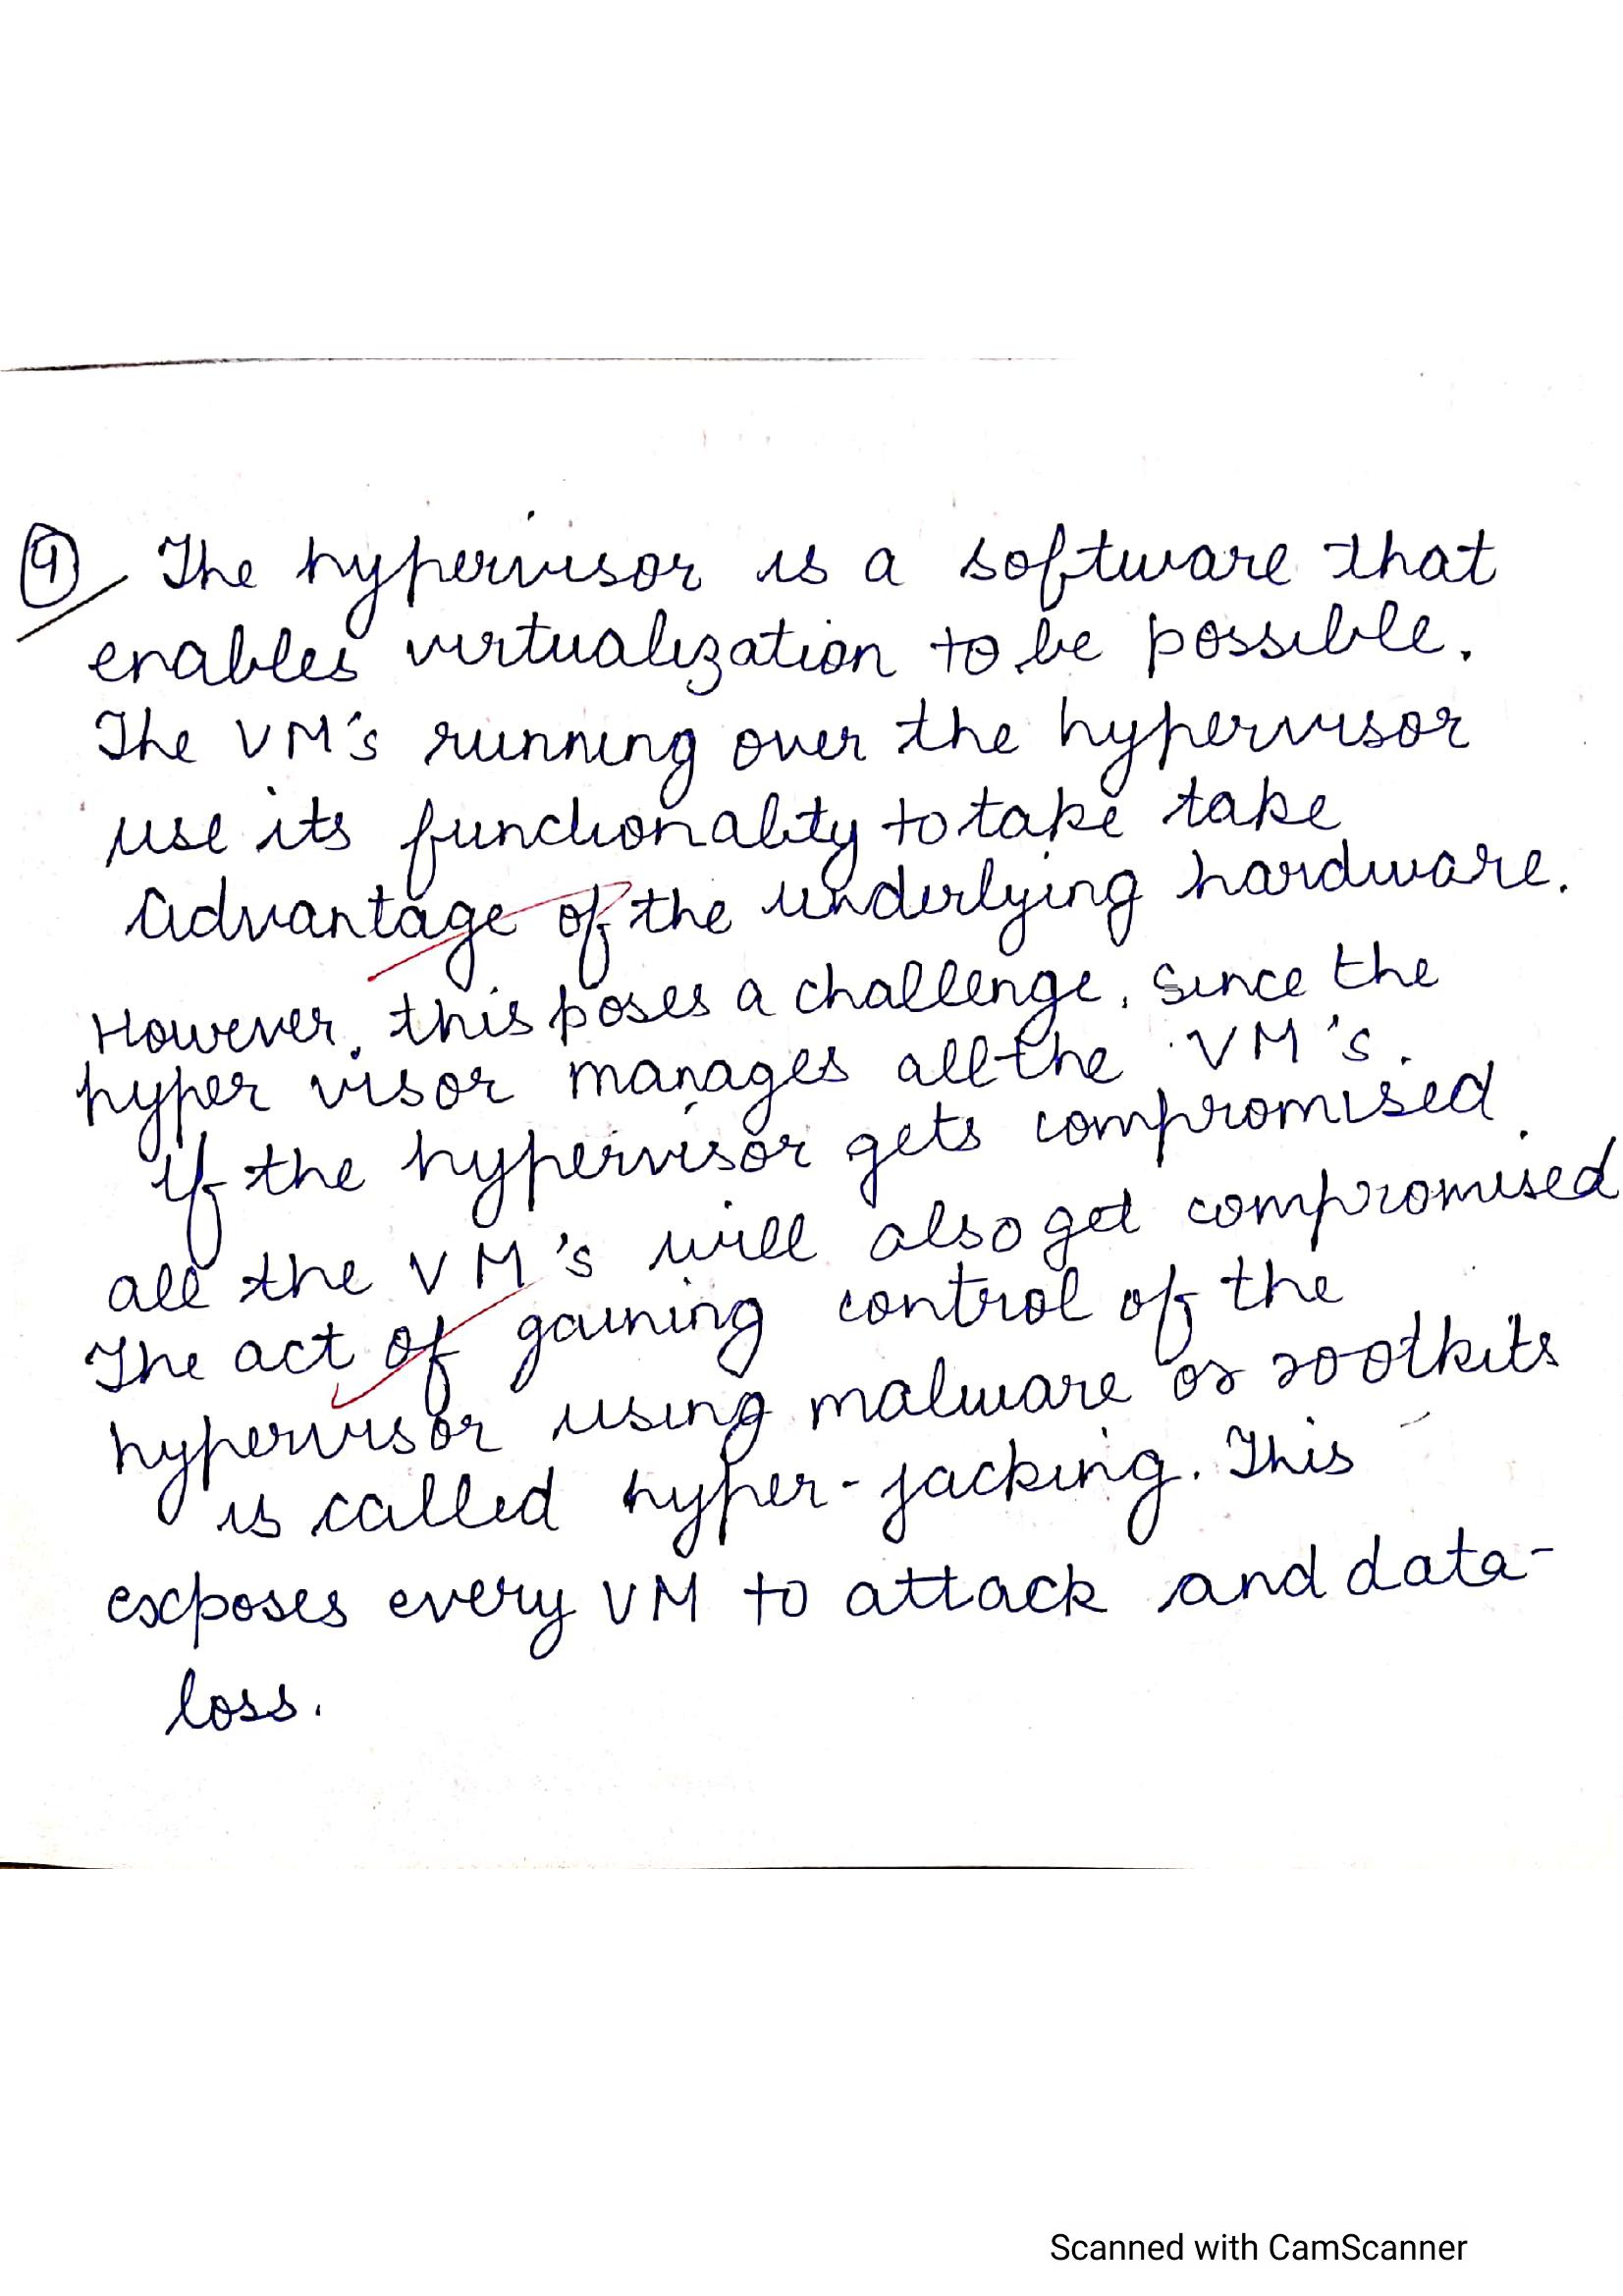 9 The hypervisor is a software that
enables virtualization to be possible.
The VM's running over the hypervisor
use its functionality to take take
advantage of the underlying hardware.
However, this poses a challenge. Since the
hyper visor manages all the VM's.
If the hypervisor gets compromised.
all the VM's will also get compromised
The act of gaining control of the
hypervisor using malware or rootkits
is called hyper-jacking. This
exposes every VM to attack and data-
loss.
Scanned with CamScanner